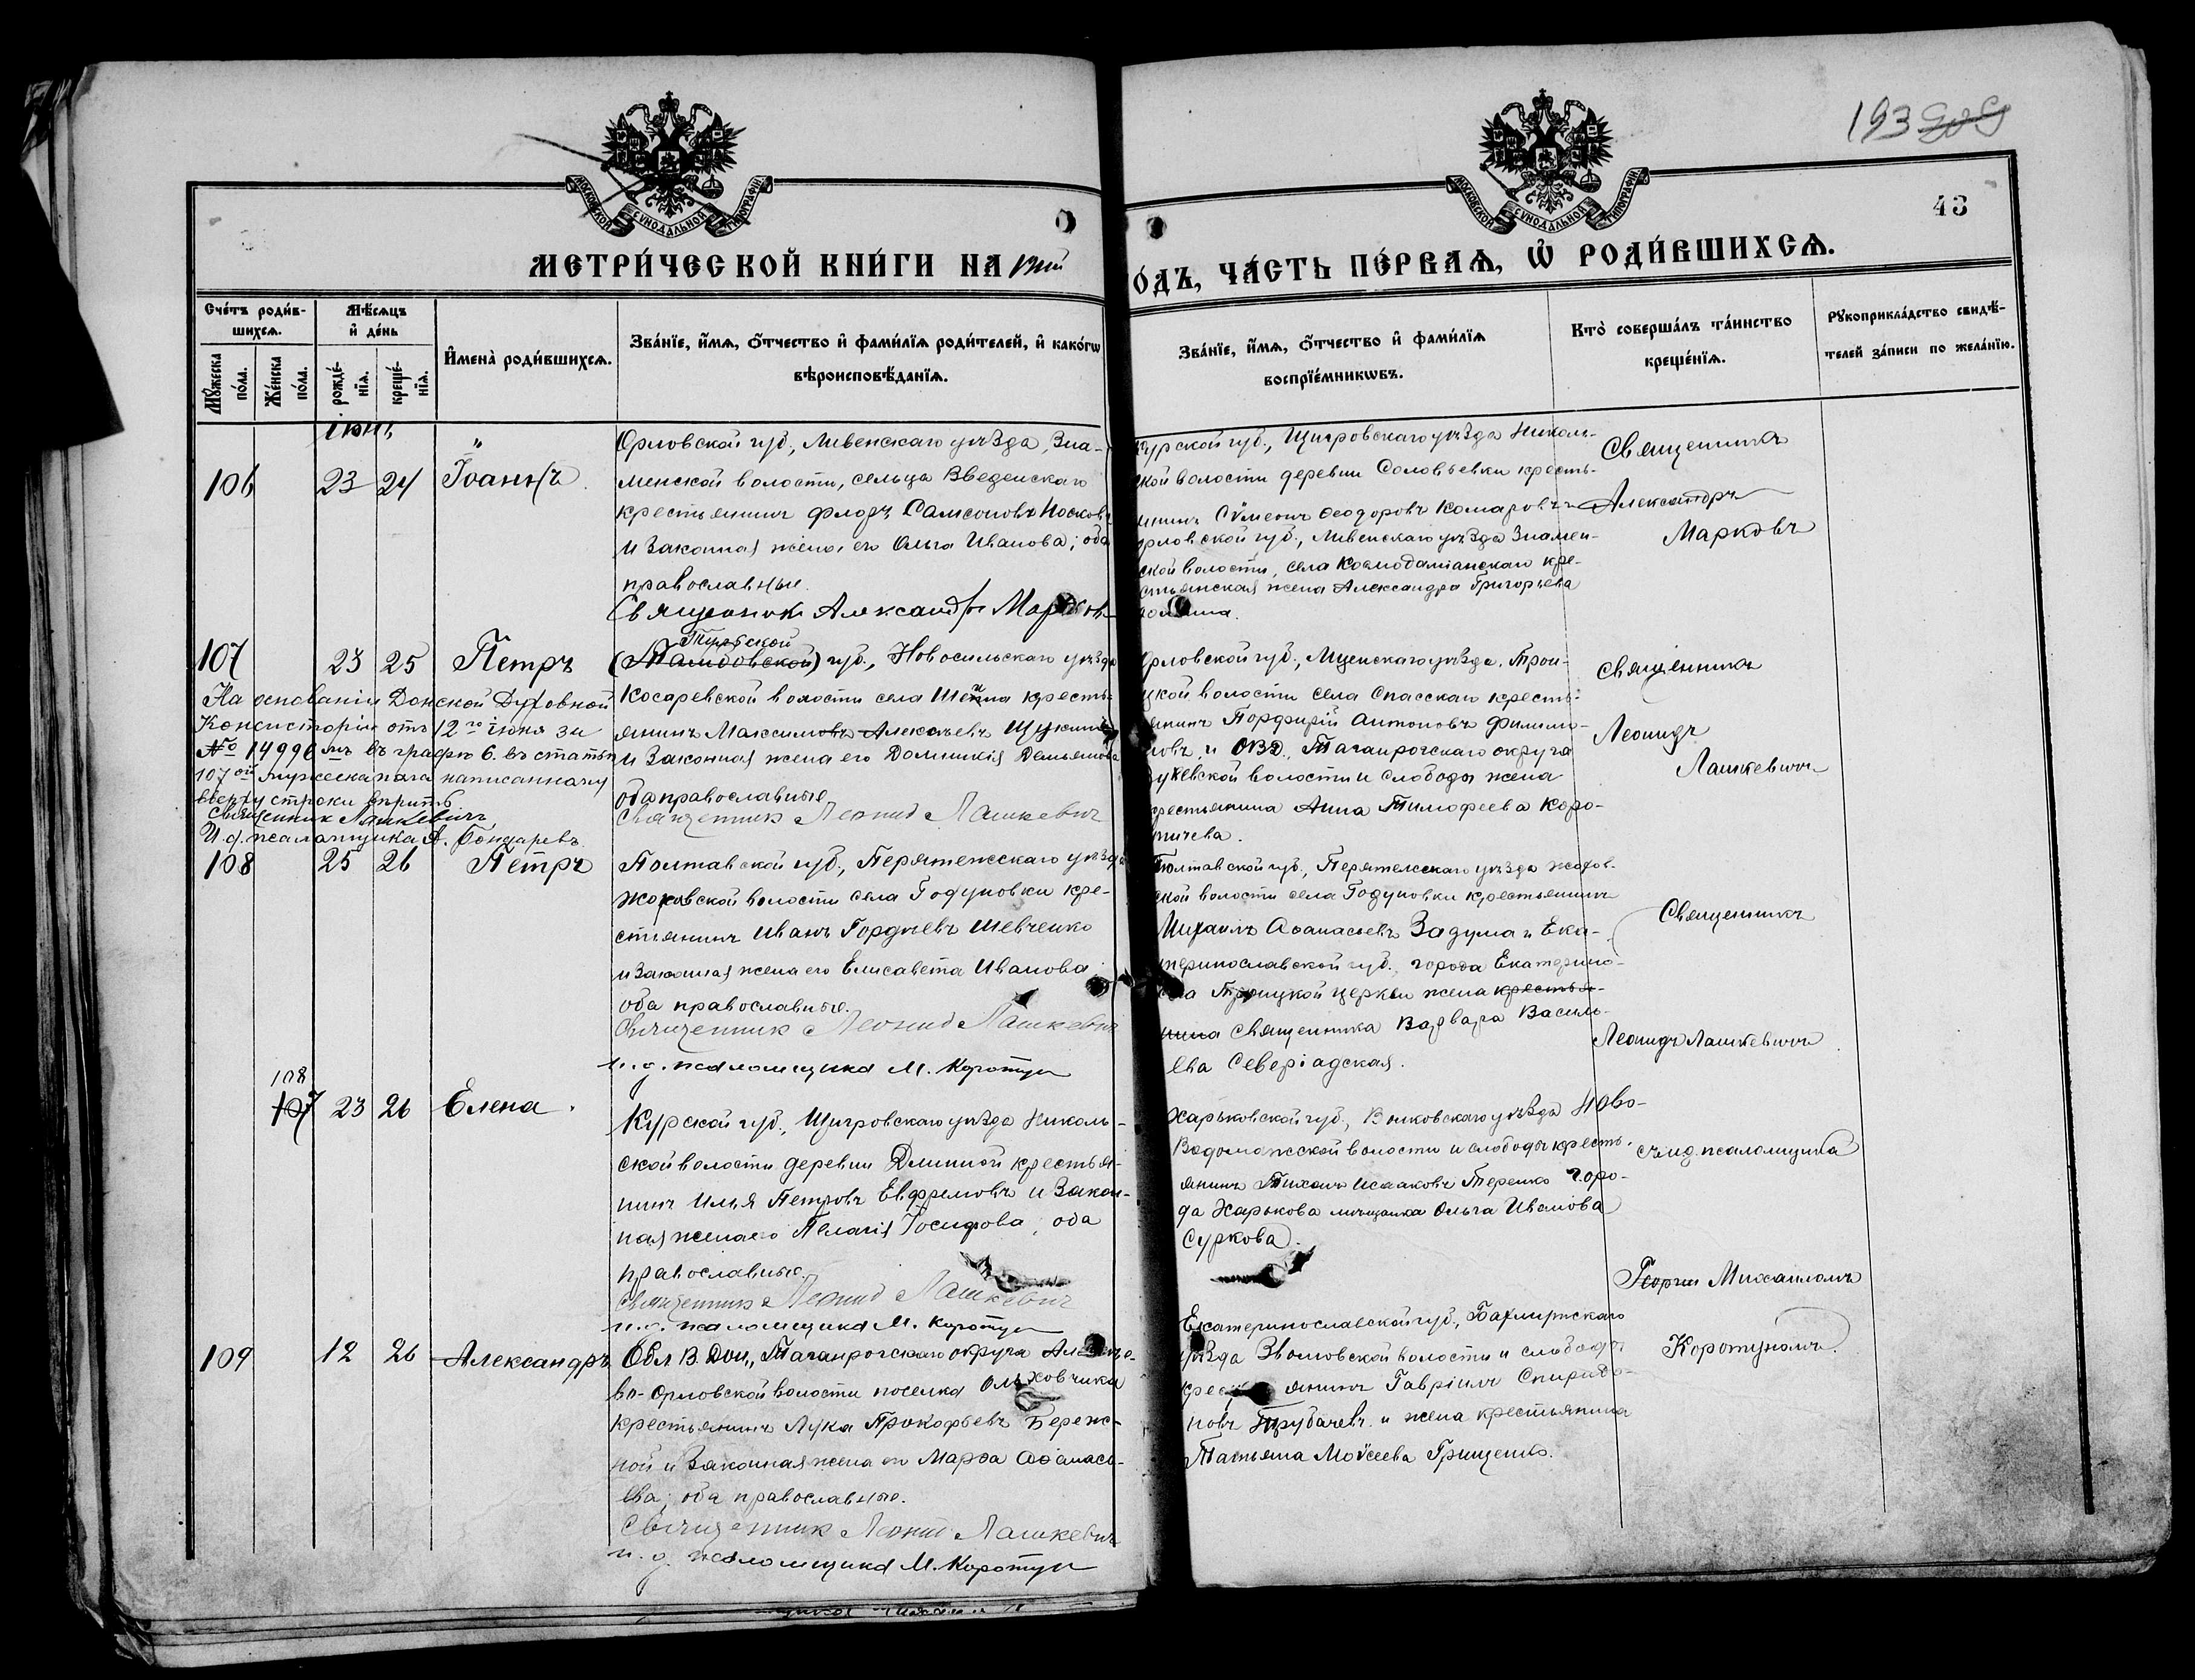 193
43
МОСКОВСКОЙ СУНОДАЛЬНОЙ ТИПОГРАФІИ
МОСКОВСКОЙ СУНОДАЛЬНОЙ ТИПОГРАФІИ
МЕТРИ́ЧЕСКОЙ КНИ́ГИ НА
ОДЪ, ЧА́СТЬ ПЕ́РВАѦ, Ѡ҆ РОДИ́ВШИХСѦ.
Сче́тъ роди́в-
шихсѧ.
Мꙋжеска по́ла.
Же́нска по́ла.
Мѣ́сѧцъ
и҆ де́нь
рожде́-
нїѧ.
креще́-
нїѧ.
И҆мена̀ роди́вшихсѧ.
Зва́нїе, и҆́мѧ, ѻ҆́тчество и҆ фами́лїѧ роди́телей, и҆ како́гѡ
вѣроисповѣ́данїѧ.
Зва́нїе, и҆́мѧ, ѻ҆́тчество и҆ фами́лїѧ
воспрїе́мникѡвъ.
Кто̀ соверша́лъ та́инство
креще́нїѧ.
Рꙋкоприкла́дство свидѣ́-
телей за́писи по жела́нїю.
106 23 24 Іоаннъ
Орловской губ., Ливенскаго уѣзда, Зна-
менской волости, сельца Введенскаго
крестьянинъ Флоръ Самсоновъ Носковъ
и законная жена его Ольга Иванова; оба
православные.
Священникъ Александръ Марковъ
Курской губ., Щигровскаго уѣзда Николь-
ской волости деревни Соловьевки кресть-
янинъ Сѵмеонъ Ѳеодоровъ Комаровъ
Орловской губ., Ливенскаго уѣзда Знамен-
ской волости, села Космодаміанскаго кре-
стьянская жена Александра Григорьева
Священникъ
Александръ
Марковъ
107 23 25 Петръ
Тульской
(Тамбовской) губ., Новосильскаго уѣзда
Косаревской волости села Шеина кресть-
янинъ Максимовъ Алексѣевъ Щукинъ
и законная жена его Домникія Демьянова
оба православные
Священник Леонид Лашкевич
На основаніи Донской Духовной
Консисторіи отъ 12го іюня за
№ 14996 мъ въ графѣ 6. въ статьѣ
107ой мужеска пола написанному
вверху строки вѣрить.
Священник Лашкевичъ
И.д. псаломщика А. Бондаревъ
Орловской губ., Мценскаго уѣзда, Трои-
цкой волости села Спасскаго кресть-
янинъ Порфирій Антоновъ Филимо-
новъ и ОВД., Таганрогскаго округа
волости и слободы жена
крестьянина Анна Тимофеева Коро-
тичева.
Священникъ
Леонидъ
Лашкевичъ
108 25 26 Петръ
Полтавской губ., Пирятенскаго уѣзда
волости села Годуновки кре-
стьянинъ Иванъ Гордѣевъ Шевченко
и законная жена его Елисавета Иванова
оба православные.
Священник Леонид Лашкевич
и.д. псаломщика М. Коротун
Полтавской губ., Пирятенскаго уѣзда
ской волости села Годуновки крестьянинъ
Михаилъ Аѳанасьевъ Задума и Ека-
теринославской губ., города Екатерино-
Троицкой церкви жена крестья-
нина священника Варвара Василь-
ева Северіадская.
Священникъ
Леонидъ Лашкевичъ
108
107 23 26 Елена
Курской губ., Щигровскаго уѣзда Николь-
ской волости деревни Длинной крестья-
нинъ Илья Петровъ Евфремовъ и закон-
ная жена его Пелагія Іосифова; оба
православные.
Священник Леонид Лашкевич
и.д. псаломщика М. Коротун
Харьковской губ., Валковскаго уѣзда Ново-
Водолажской волости и слободы кресть-
янинъ Тихонъ Исааковъ Теренко горо-
да Харькова мѣщанка Ольга Иванова
Суркова.
съ и.д. псаломщика
Георгіи Михаиломъ
Коротуномъ
109 12 26 Александръ
Обл. В. Дон., Таганрогскаго округа
во-Орловской волости поселка Ольховчика
крестьянинъ Лука Прокофьевъ Береж-
ной и законная жена его Марѳа Аѳанась-
ева; оба православные.
Священник Леонид Лашкевич
и.д. псаломщика М. Коротун
Екатеринославской губ., Бахмутскаго
уѣзда волости и слободы
янинъ Гавріилъ Спиридо-
новъ Трубачевъ и жена крестьянина
Татьяна Моѵсеева Грищенко.